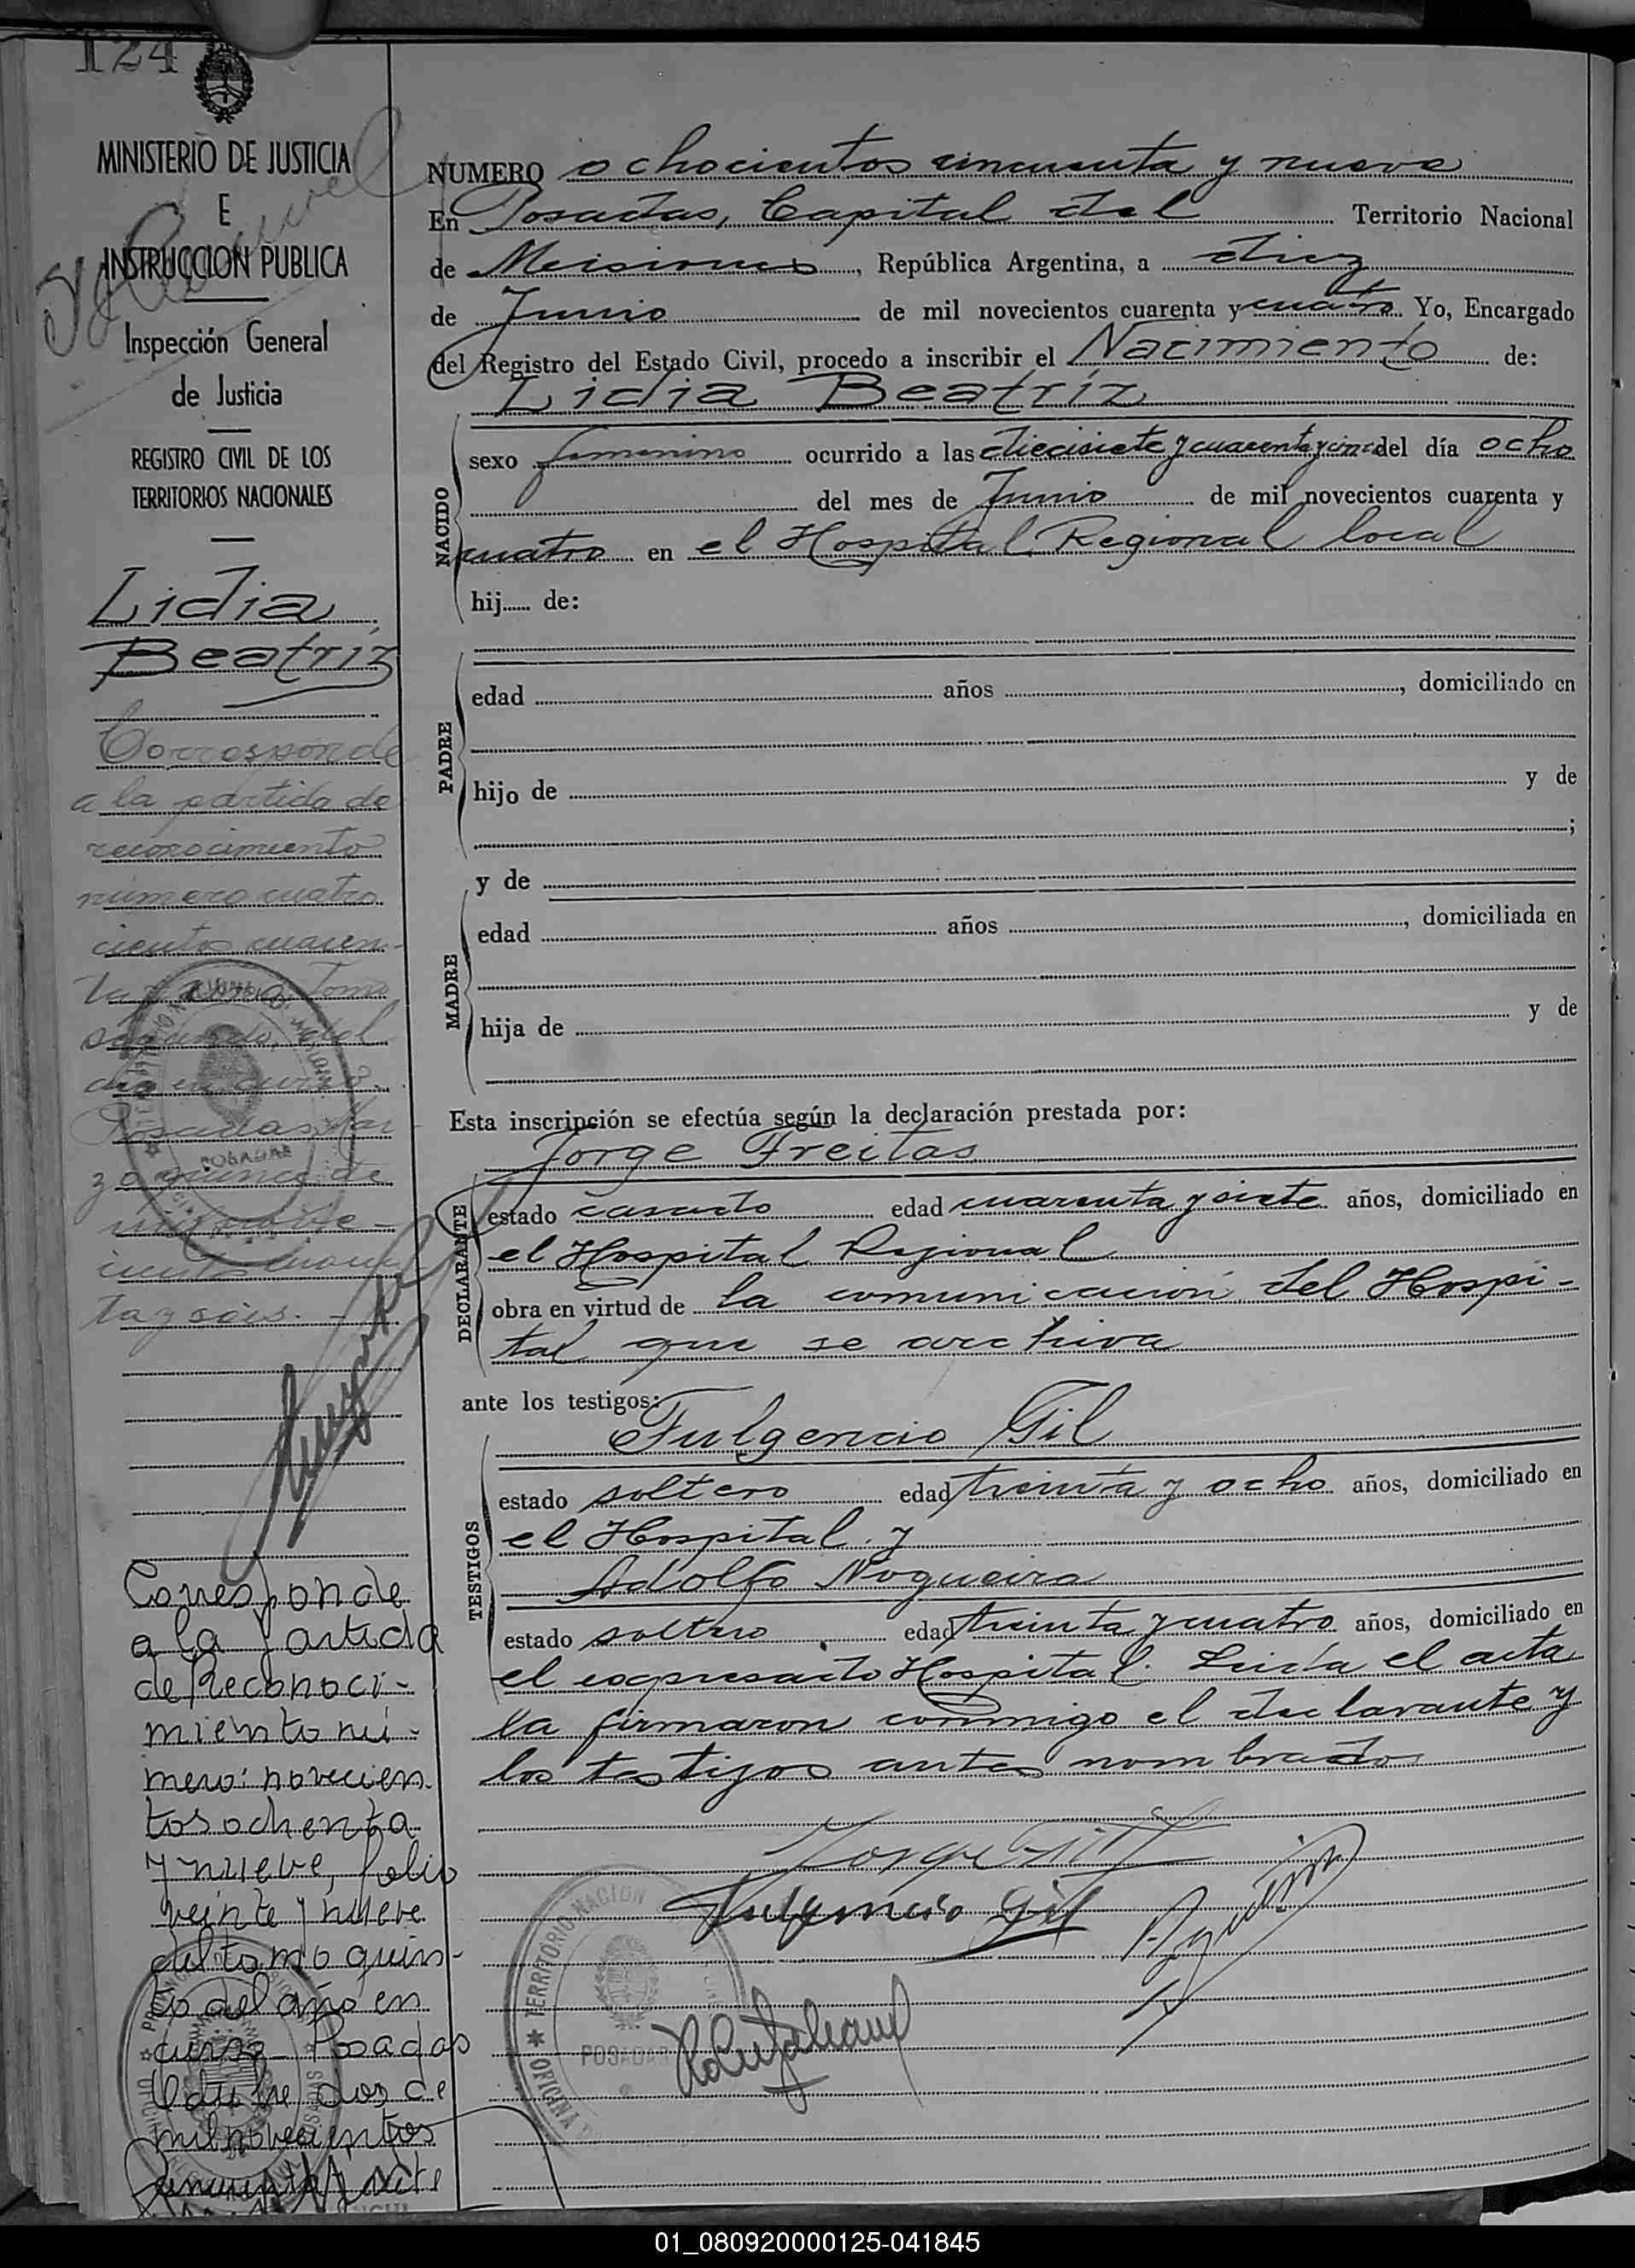 124
MINISTERIO DE JUSTICIA
E
INSTRUCCION PUBLICA
Inspección General
de Justicia
REGISTRO CIVIL DE LOS
TERRITORIOS NACIONALES
Lidia
Beatriz
Corresponde
a la partida de
reconocimiento
número cuatro
cientos cuaren-
ta y Tomo
segundo, del
año en curso.
Posadas, Mar
zo quince de
mil nove-
cientos cuaren
ta y seis.
Corresponde
a la partida
de Reconoci-
miento nú-
mero: novecien
tos ochenta
y nueve, folio
veinte y nueve
del tomo quin-
to del año en
curso Posadas
Octubre dos de
mil novecientos
cincuenta y siete
NUMERO ochocientos cincuenta y nueve
En Posadas, Capital del Territorio Nacional
de Misiones, República Argentina, a diez
de Junio de mil novecientos cuarenta y cuatro. Yo, Encargado
del Registro del Estado Civil, procedo a inscribir el Nacimiento de:
Lidia Beatríz
NACIDO
sexo femenino ocurrido a las diecisiete y cuarenta y cinco del día ocho
del mes de Junio de mil novecientos cuarenta y
cuatro en el Hospital Regional local
hij...... de:
PADRE
edad años , domiciliado en
hijo de y de
;
y de
MADRE
edad años , domiciliada en
hija de y de
Esta inscripción se efectúa según la declaración prestada por:
Jorge Freitas
DECLARANTE
estado casado edad cuarenta y siete años, domiciliado en
el Hospital Regional
obra en virtud de la comunicación del Hospi-
tal que se archiva
ante los testigos:
Fulgencio Gil
TESTIGOS
estado soltero edad treinta y ocho años, domiciliado en
el Hospital y
Adolfo Nogueira
estado soltero edad treinta y cuatro años, domiciliado en
el expresado Hospital. Leída el acta
la firmaron conmigo el declarante y
los testigos antes nombrados
Fulgencio Gil
TERRITORIO NACION
OFICINA
POSADAS
01_080920000125-041845